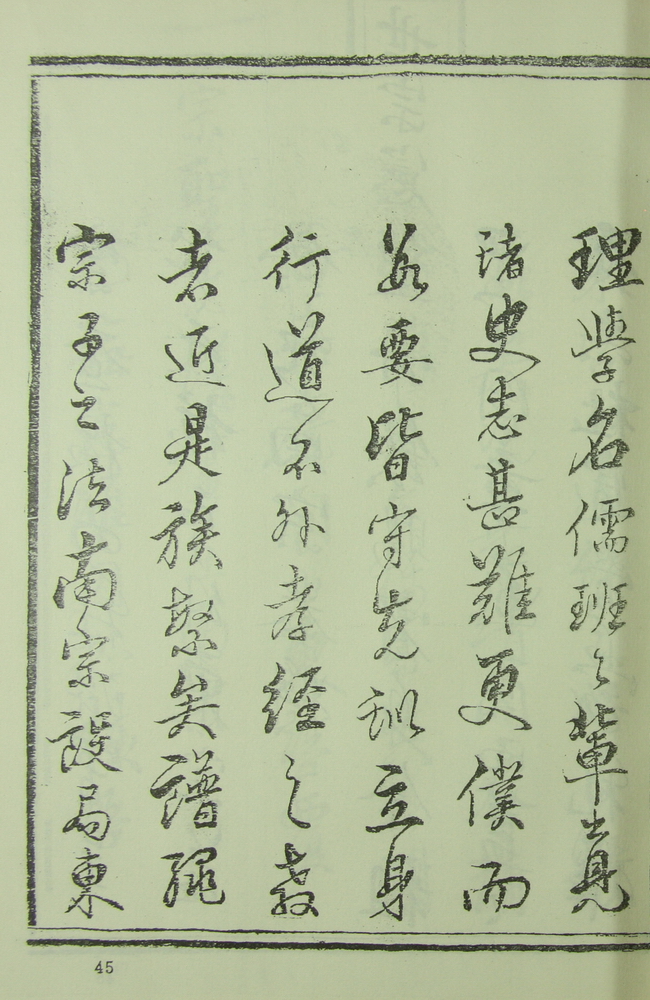 理學名儒班々輩出見
諸史志甚難更僕而
數要皆守先訓立身
行道不外孝經之教
者近是族繁矣譜繩
宗子之法南宗設局東
45